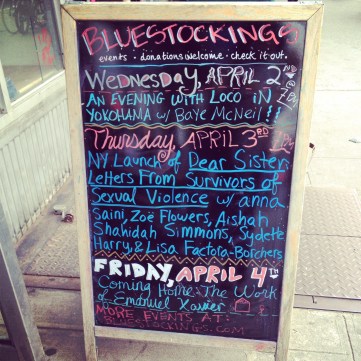 BLUESTOCKINGS
events · donations welcome · check it out.
WEDNESDAY, APRIL 2ND @ 7PM
AN EVENING WITH LOCO IN
YOKOHAMA w/ BAYE MCNEIL!!
THURSDAY, APRIL 3RD 7PM
NY Launch of Dear Sister:
Letters From Survivors of
Sexual Violence w/ anna
Saini, Zoë Flowers, Aishah
Shahidah Simmons, Sydette
Harry, & Lisa Factora-Borchers
FRIDAY, APRIL 4TH
Coming Home: The Work
of Emanuel Xavier
MORE EVENTS AT:
BLUESTOCKINGS.COM